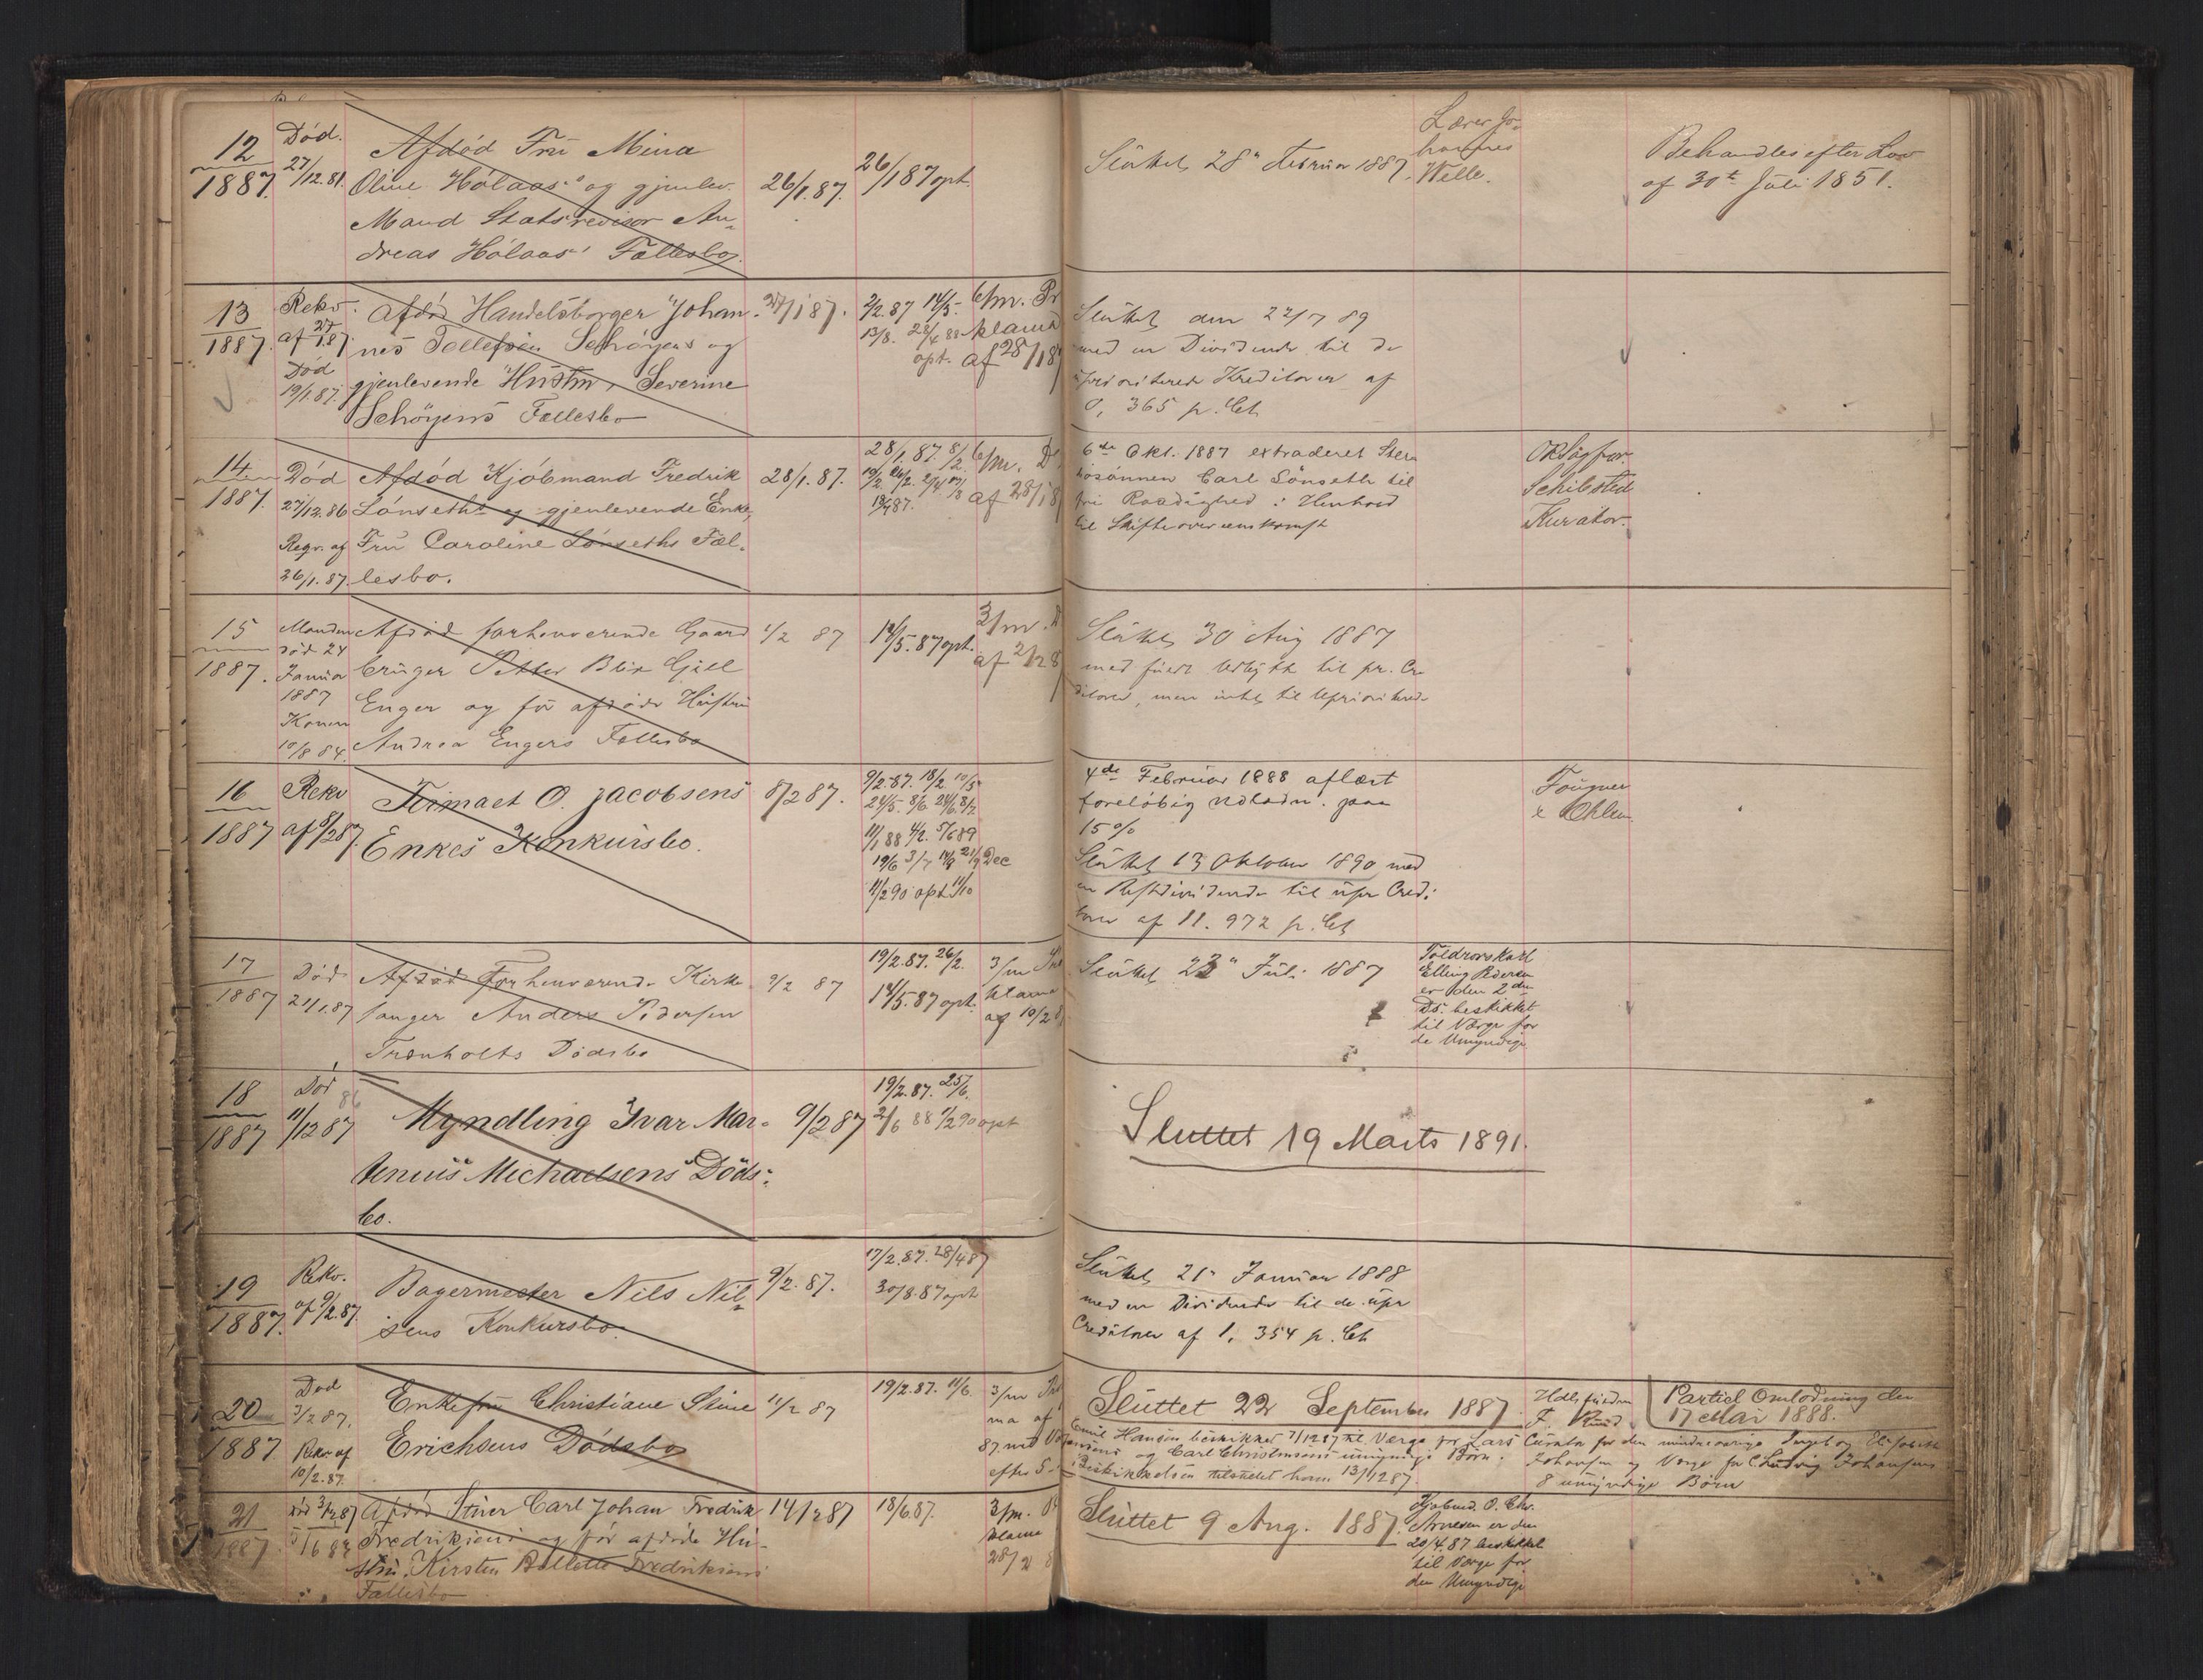 12
1887.
Död.
27/12.81.
Afdöd Frü Mina
Oline Hólaas' og gjenlev.
Mand Statsrevisor An-
dreas Hólaas' Fællesbo.
26/1.87.
26/1 87 opt.
Slüttet 28" Februar 1887.
Lærer Jo-
hannes
Welle.
Behandles efter Lov
af 30te Juli 1851.
13
1887.
Rekv.
af 27/1 87.
Död
19/1.87.
Afdöd Handelsborger Johan-
nes Tollefsen Schöyens og
gjenlevende Hustru, Severine
Schöyens Fællesbo
27/1 87.
2/2.87 14/5.
13/8. 28/4 88
opt.
6/m. Pr
klama
af 28/1 8
Slüttet den 22/7 89
med en Dividende til de
üprioriterede Kreditorer af
0,365 p. Ct.
14
1887.
Död
27/12.86
Reqv. af
26/1.87.
Afdöd Kjöbmand Fredrik
Lónseths og gjenlevende Enke,
Frü Caroline Lónseths Fæl-
lesbo.
28/1.87.
28/1.87. 8/2.
6/m.
af 28/1 8
6te Okt. 1887 extraderet Sted-
sösönnen Carl Lönseth til
fri Raadighed i Henhold
til Skifteovereenskomst
ORSagfør.
Schibsted
Kurator.
15
1887.
Manden
död 24
Januar
1887
Konen
10/8 84.
Afdöd forhenværende Gaard
brüger Petter Blix Gjell
Enger og för afdöde Hüstrü
Andrea Engers Fællesbo
1/2 87
14/5.87 opt.
3/m.
af 2/2 8
Slüttet 30 Aug 1887
med füldt Udbytte til pr. Cre
ditorer, men intet til Uprioriterede
16
1887
Rekv
af 8/2 87.
Firmaet O. Jacobsens
Enkes Konkursbo.
8/2 87.
9/2.87. 18/2 10/5
24/5. 8/6 24/6 8/7.
11/1 88 4/2. 5/6 89
19/6 3/7 14/9 21/9 Dec
11/2 90 opt 11/10
4de Februar 1888 aflæst
foreløbig Udlodn. paa
15%
Slüttet 13 Oktober 1890 med
en Restdividende til üpr Cred:
torer af 11.972 p. Ct
Fougner
& Ohlen
17
1887
Död
21/1.87
Afdöd Forhenværende Kirke
sanger Anders Pedersen
Trønholts Dödsbo
9/2 87
19/2.87. 26/2.
14/5.87 opt.
3/m
klama
af 10/2 8
Slüttet 23" Jüli 1887
Toldrorskarl
Elling Pedersen
er den 2den
Ds. beskikket
til Værge for
de Umyndige
18
1887
Död
86
11/12 87
Myndling Ivar Mar-
tenius Michaelsens Döds-
bo.
9/2 87
19/2.87. 25/6.
2/6 88 1/2 90 opt
Sluttet 19 Marts 1891.
19
1887.
Rekv.
af 9/2.87.
Bagermester Nils Nil-
sens Konkursbo.
9/2.87.
17/2.87. 28/4 87
30/8.87 opt
Slüttet 21" Januar 1888
med en Dividende til de üpr
Creditorer af 1,354 p. Ct
20
1887.
Död
3/2 87.
Rekv. af
10/2.87.
Enkefrü Christiane Stine
Erichsens Dödsbo
11/2 87
19/2.87. 11/6.
3/m
ma af
87. med
efter
Slüttet 22 September 1887.
Partiel Omlodning den
17 Mai 1888.
Emil Hansen beskikket 7/12 87 til Værge for Lars
og Carl Christensens umyndige Börn.
Beskikkelsen tilstillet ham 13/12 87.
Curator for den mindreaarige
Johansen og Værge for C. Ludvig Johansens
8 umyndige Börn
21
1887.
död 3/2 87
Afdöd Stüer Carl Johan Fredrik
Fredriksens og för afdöde Hü-
strü, Kirsten Bollette Fredriksens
Fællesbo
14/2 87
18/6.87.
3/m.
klama
28/2 8
Slüttet 9 Aug. 1887.
Kjøbmd. O. Chr.
Arnesen er den
20/4.87 beskikket
til Værge for
den Umyndige